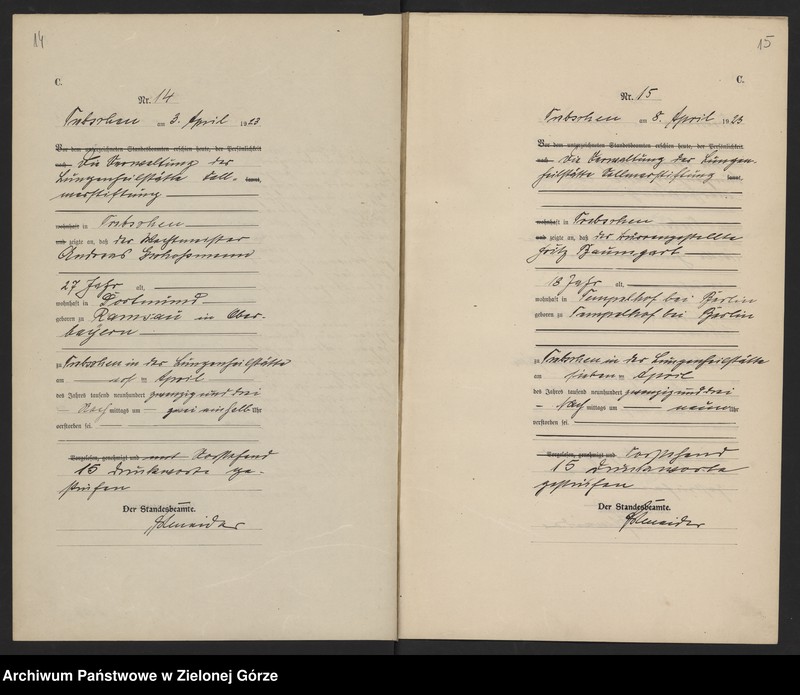 14
C.
Nr. 14
Trebschen am 3. April 1923
Vor dem unterzeichneten Standesbeamten erschien heute, der Persönlichkeit
nach die Verwaltung der
Lungenheilstätte Voll- kannt,
merstiftung
wohnhaft in Trebschen
und zeigte an, daß der Wachtmeister
Andreas
27 Jahr alt,
wohnhaft in Dortmund
geboren zu Ramsau in Ober-
bayern
zu Trebschen in der Lungenheilstätte
am April
des Jahres tausend neunhundert zwanzig und drei
Nach mittags um zwei einhalb Uhr
verstorben sei.
Vorgelesen, genehmigt und Vorstehend
15 Druckworte ge-
strichen
Der Standesbeamte.
Schneider
15
C.
Nr. 15
Trebschen am 8. April 1923
Vor dem unterzeichneten Standesbeamten erschien heute, der Persönlichkeit
nach die Verwaltung der Lungen-
heilstätte Vollmerstiftung kannt,
wohnhaft in Trebschen
und zeigte an, daß der
Fritz Baumgart
18 Jahr alt,
wohnhaft in Tempelhof bei Berlin
geboren zu Tempelhof bei Berlin
zu Trebschen in der Lungenheilstätte
am sieben April
des Jahres tausend neunhundert zwanzig und drei
Nach mittags um neun Uhr
verstorben sei.
Vorgelesen, genehmigt und Vorstehend
15 Druckworte
gestrichen
Der Standesbeamte.
Schneider
Archiwum Państwowe w Zielonej Górze